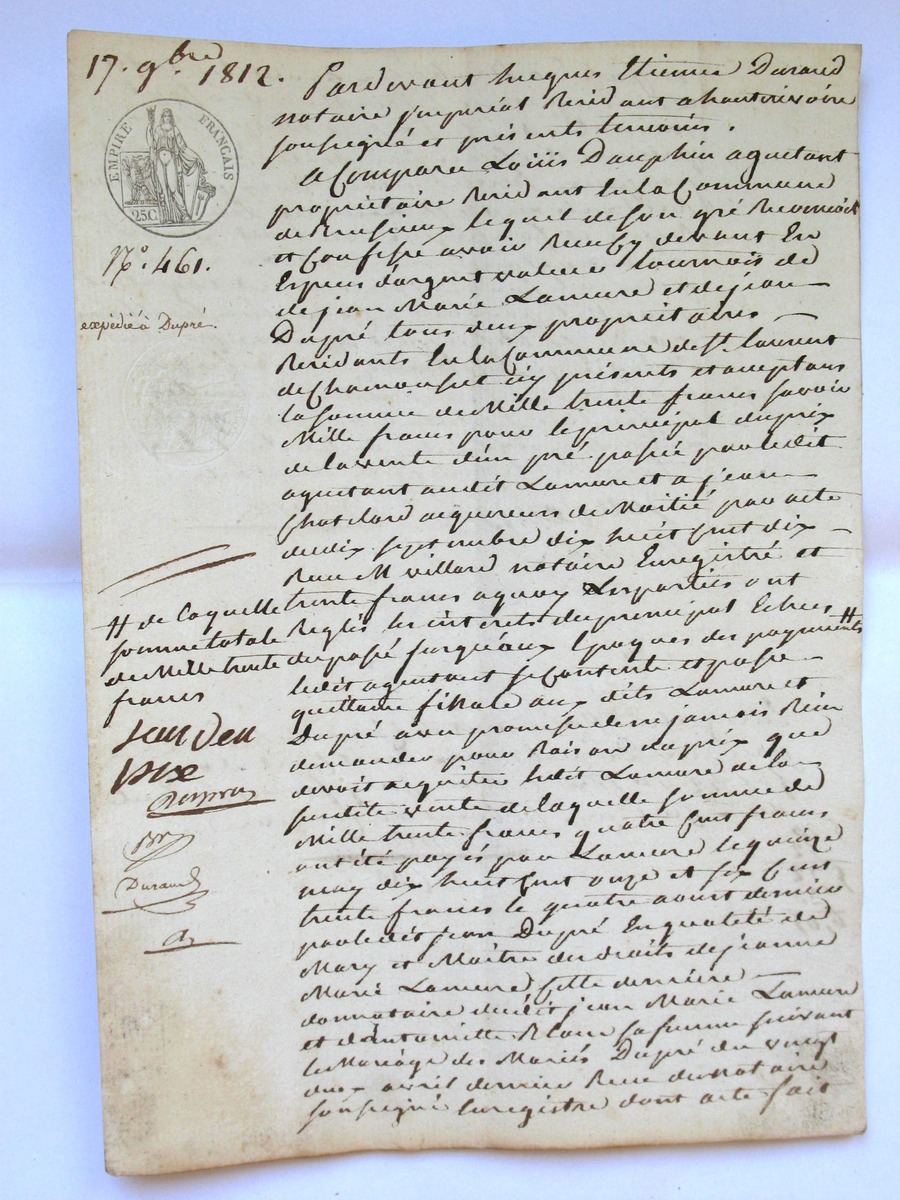 17. 9bre 1812.
EMPIRE FRANÇAIS
25C.
N°. 461.
expédié à Dupré.
Pardevant hugues Etienne Durand
notaire jmperial Residant a hauterivoire
soussigné et présents temoins.
a Comparu Loüis Dauphin aquetant
propriétaire Residant En la Commune
de lequel de son gré Reconnoit
et Confesse avoir Reçu Cy devant En
Especes d'argent valeur tournois de
de jean Marie Lamure et de jean
Dupré tous deux propriétaires
Residants En la Commune de St. laurent
de Chamousset icy présents et acceptans
la somme de Mille trente francs savoir
Mille francs pour le principal du prix
de la vente d'un pré passée par ledit
aquetant audit Lamure et a jean
Chatelard aquereurs de Moitié par acte
du dix septembre dix huit Cent dix
Reçu M villard notaire Enregistré et
trente francs a quoy Les parties ont
Reglés les interets du principal Echus
du passé jusqu'aux Epoques des payments #
ledit aquetant se Contente et passe
quittance finale aux dits Lamure et
Dupré avec promesse de ne jamais Rien
demander pour Raison du prix que
devoit aquiter ledit Lamure de la
susdite vente de laquelle somme de
Mille trente francs quatre Cent francs
ont été payés par Lamure le quinze
may dix huit Cent onze et six Cent
trente francs le quatre aoust dernier
par ledit jean Dupré En qualité de
Mary et Maître des droits de jeanne
Marie Lamure Cette dernière
donnataire dudit jean Marie Lamure
et d'antoinette Blanc sa femme suivant
le Mariage des Mariés Dupré du vingt
deux avril dernier Reçu du notaire
soussigné Enregistre dont acte fait
# de laquelle
somme totale
de Mille trente
francs
jean den
pre
Durand